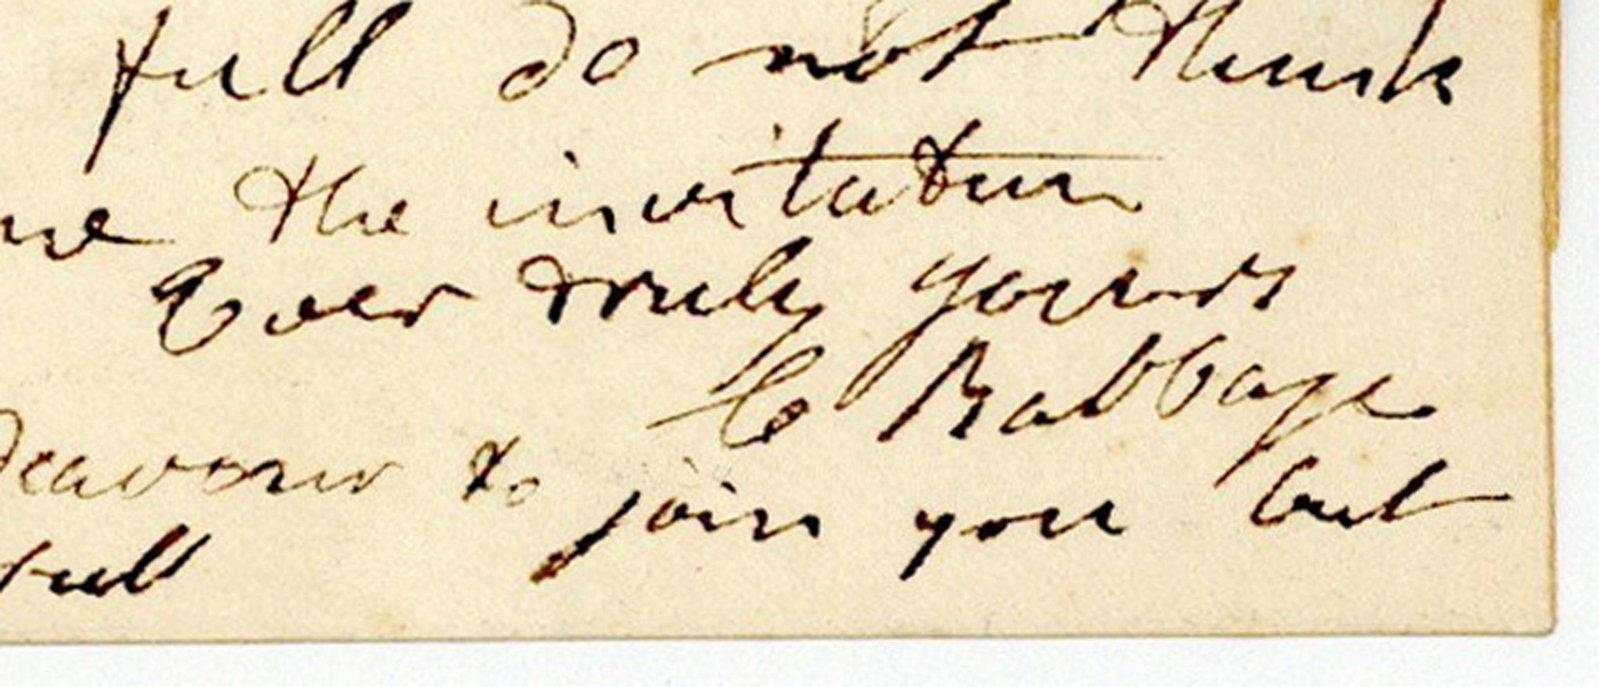 full do not think
me the invitation
Ever truly yours
C Babbage
deavour to join you but
full